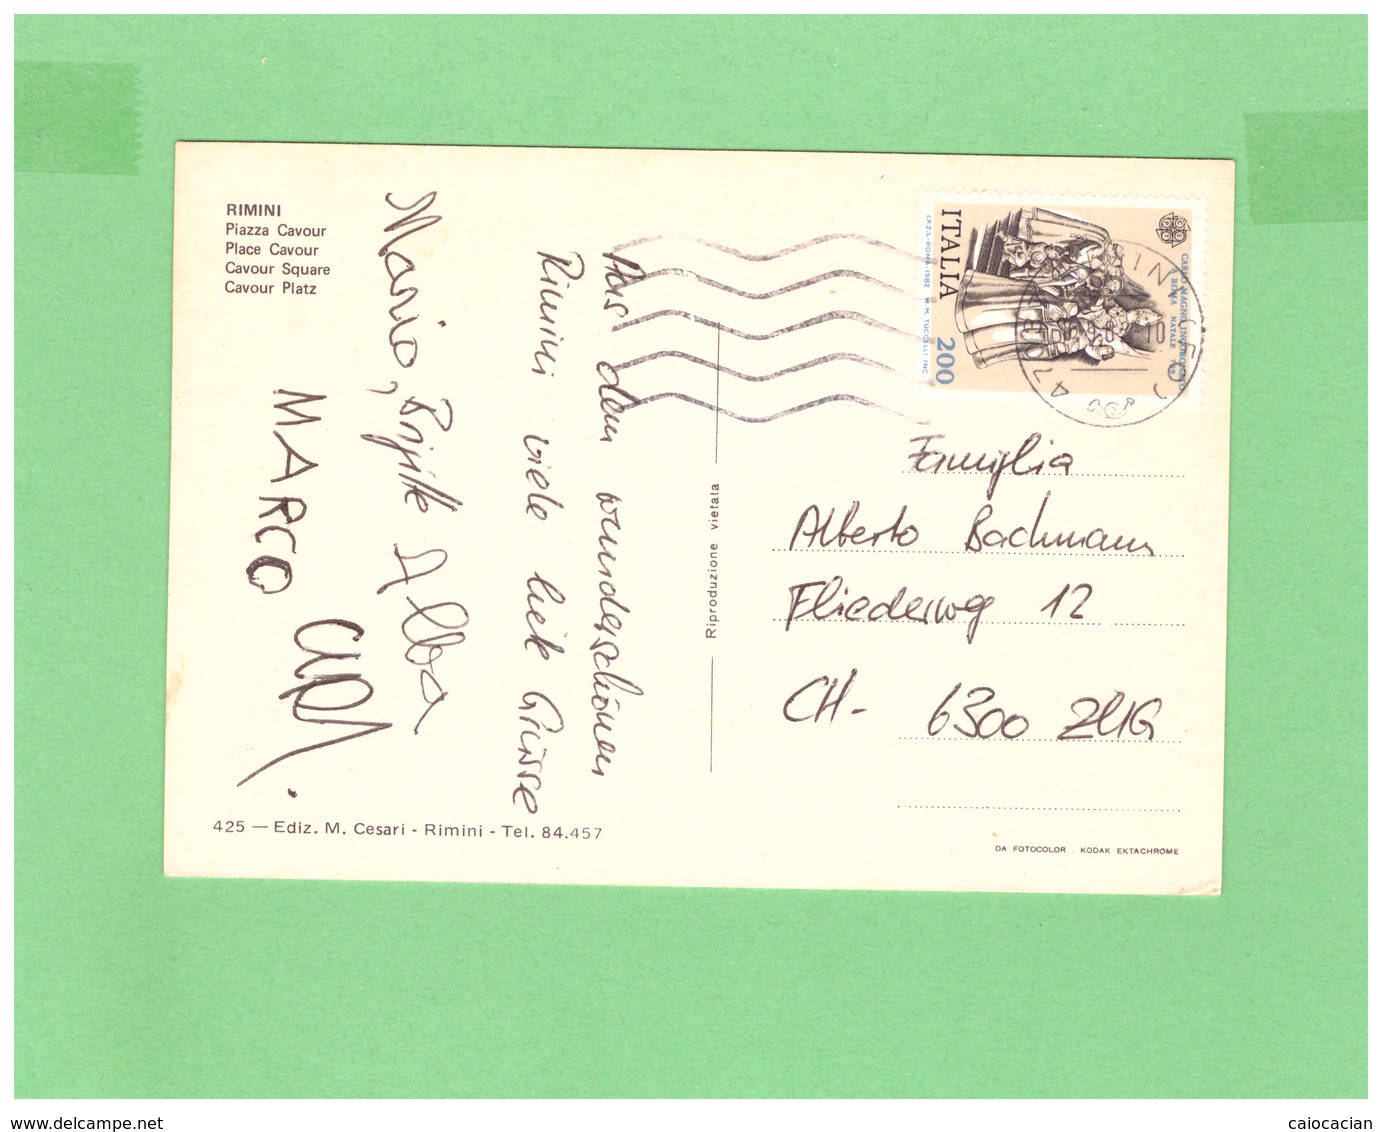 RIMINI
Piazza Cavour
Place Cavour
Cavour Square
Cavour Platz
Aus dem wunderschönen
Rimini viele lieb Grüsse
Mario, Brigitte Alba
MARCO
425 — Ediz. M. Cesari - Rimini - Tel. 84.457
Riproduzione vietata
ITALIA
200
CARLO MAGNO INCORONATO
A ROMA NATALE 799
I.P.Z.S.-ROMA-1982 M.M. TUCCELLI INC.
Famiglia
Alberto Bachmann
Fliederweg 12
CH- 6300 ZUG
DA FOTOCOLOR - KODAK EKTACHROME
www.delcampe.net
caiocacian